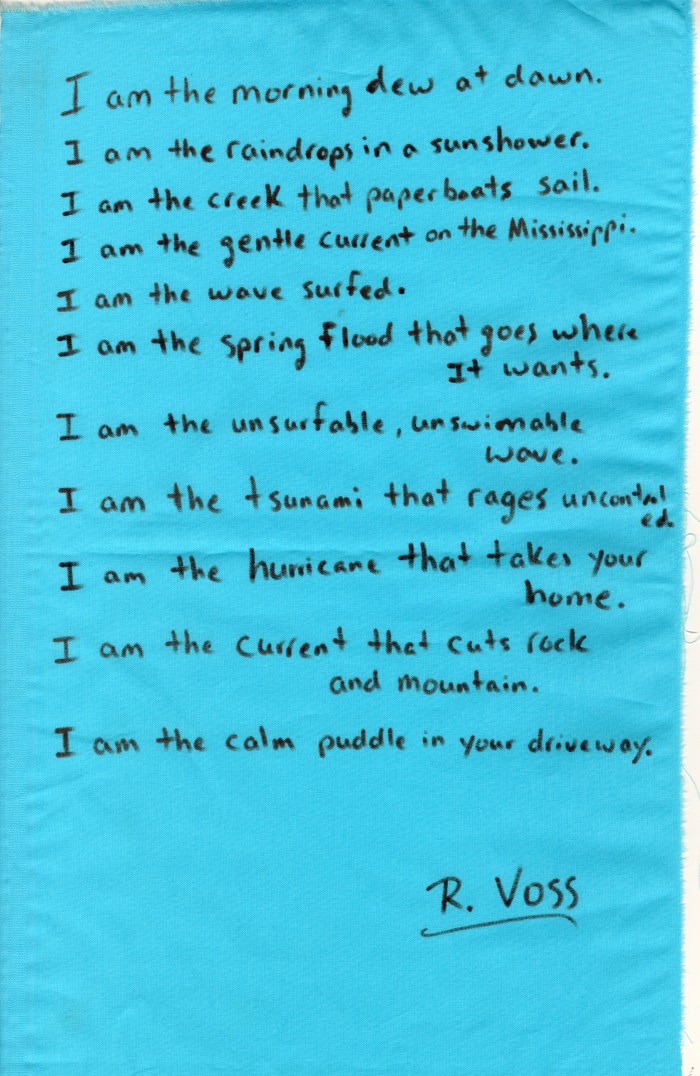 I am the morning dew at dawn.
I am the raindrops in a sunshower.
I am the creek that paperboats sail.
I am the gentle current on the Mississippi.
I am the wave surfed.
I am the spring flood that goes where
It wants.
I am the unsurfable, unswimable
wave.
I am the tsunami that rages uncontrol
ed.
I am the hurricane that takes your
home.
I am the current that cuts rock
and mountain.
I am the calm puddle in your driveway.
R. Voss